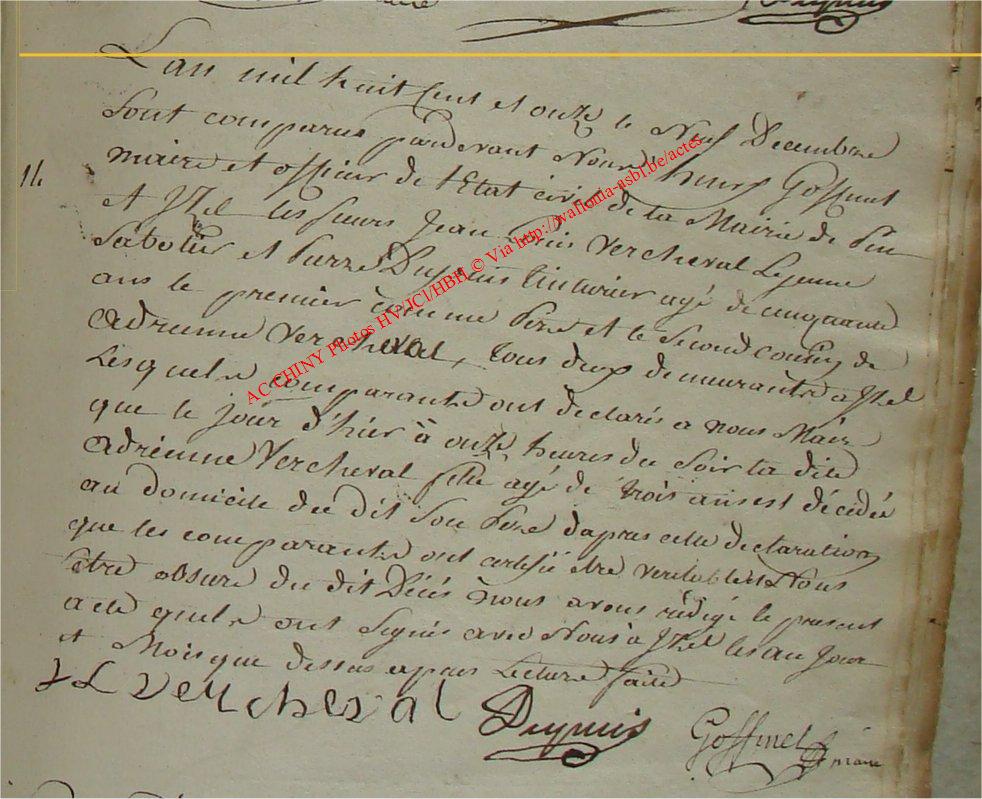 L'an mil huit Cent et onze le Neuf Decembre
Sont comparus pardevant Nous henry Goffinet
14 maire et officier de l'Etat civil de la Mairie de Pin
et Jzel les sieurs Jean Louis Vercheval Lejeune
Sabotier et Pierre Dupuis tinturier agé de cinquante
ans le premier comme Pere et le Second cousin de
Adrienne Vercheval, tous deux demeurants a Jzel
Lesquels comparants ont declarés a nous Maire
que le jour d'hier à onze heures du Soir la dite
Adrienne Vercheval fille agé de trois ans est décédée
au domicile du dit Son Pere d'apres cette declaration
que les comparants ont certifié être veritable et Nous
être assuré du dit Décés nous avons rédigé le present
acte qu'ils ont Signés avec Nous à Jzel les an Jour
et Mois que dessus apres Lecture faite
J L vercheval Dupuis Goffinet maire
AC CHINY Photos HV/JCl/HBH © Via http://wallonia-asbl.be/actes